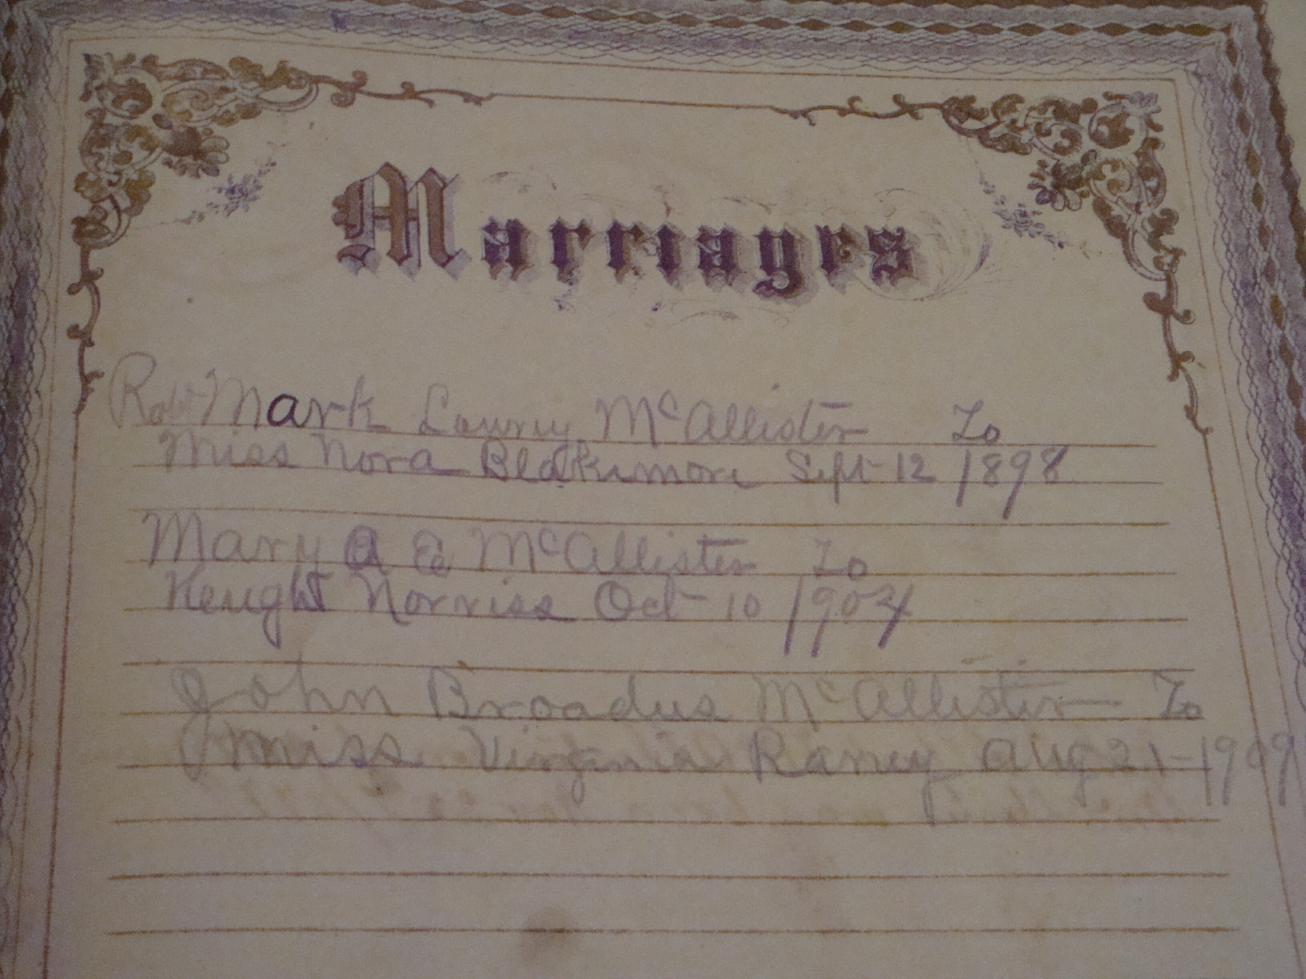 Marriages
Robt Mark Lowry McAllister To
Miss Nora Blakemore Sept 12 1898
Mary A E McAllister To
Norriss Oct 10 1904
John Broadus McAllister To
Miss Virginia Raney Aug 21-1909